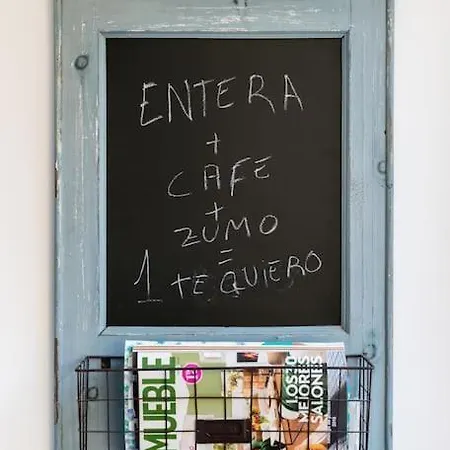 ENTERA
+
CAFE
+
ZUMO
=
1 TE QUIERO
MUEBLE
LOS 30
MEJORES
SALONES